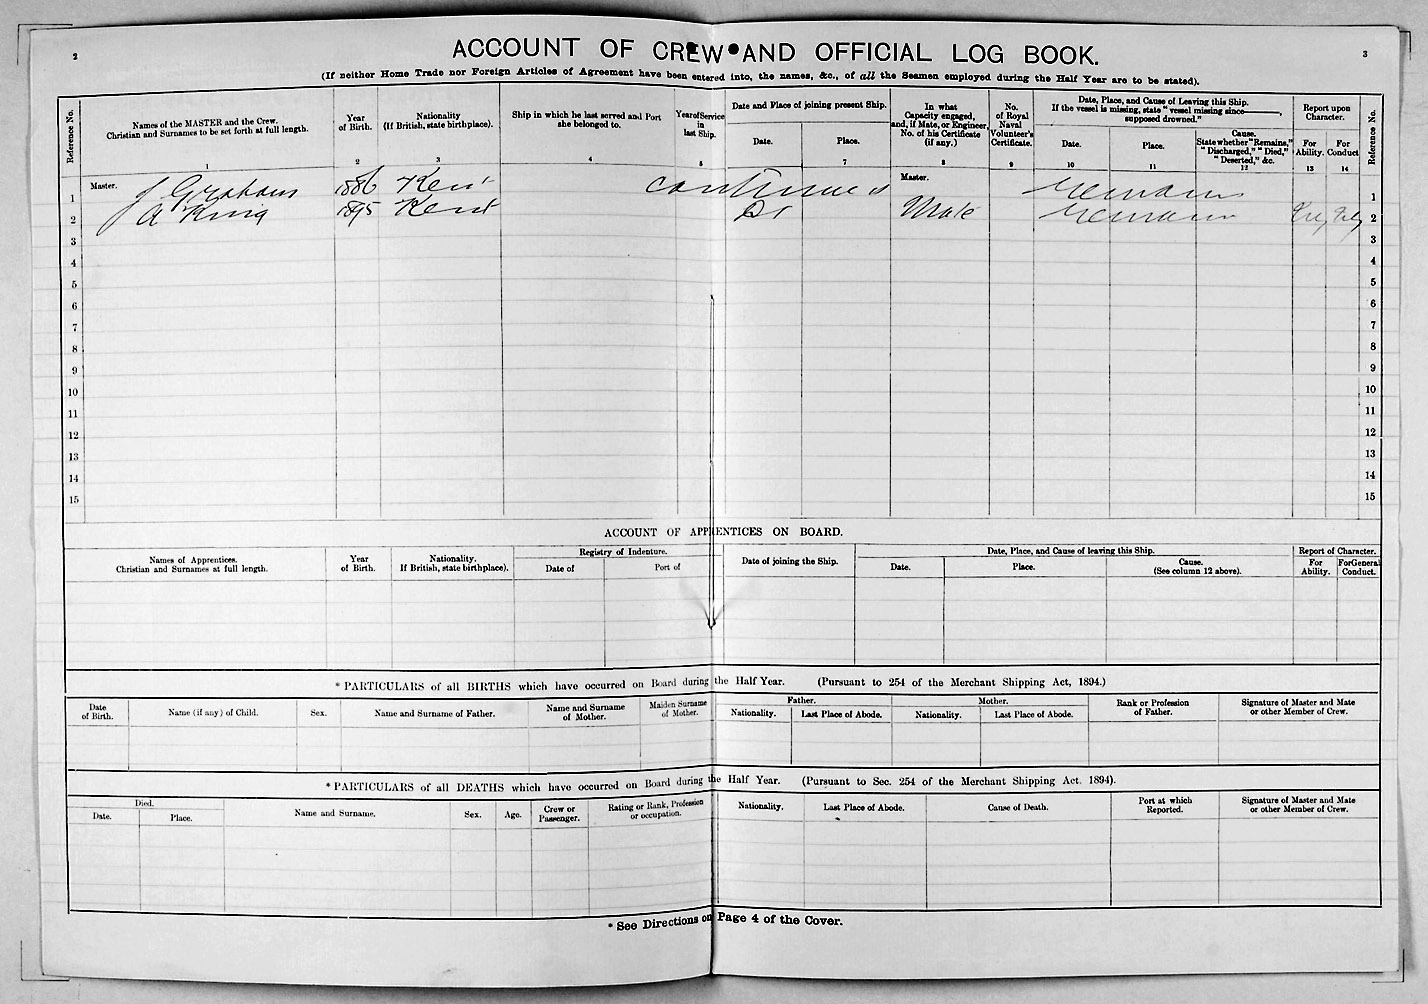 2
ACCOUNT OF CREW AND OFFICIAL LOG BOOK.
3
(If neither Home Trade nor Foreign Articles of Agreement have been entered into, the names, &c., of all the Seamen employed during the Half Year are to be stated).
Reference No.
Names of the MASTER and the Crew.
Christian and Surnames to be set forth at full length.
1
Year
of Birth.
2
Nationality
(If British, state birthplace).
3
Ship in which he last served and Port
she belonged to.
4
Year of Service
in
last Ship.
5
Date and Place of joining present Ship.
Date.
Place.
7
In what
Capacity engaged,
and, if Mate, or Engineer,
No. of his Certificate
(if any.)
8
No.
of Royal
Naval
Volunteer's
Certificate.
9
Date, Place, and Cause of Leaving this Ship.
If the vessel is missing, state "vessel missing since
supposed drowned."
Date.
10
Place.
11
Cause.
State whether "Remains,"
"Discharged," "Died,"
"Deserted," &c.
12
Report upon
Character.
For
Ability.
13
For
Conduct
14
Reference No.
1 Master. J Graham 1886 Kent continued Master. Remains 1
2 A King 1895 Kent Do Mate Remains 2
3 3
4 4
5 5
6 6
7 7
8 8
9 9
10 10
11 11
12 12
13 13
14 14
15 15
ACCOUNT OF APPRENTICES ON BOARD.
Names of Apprentices.
Christian and Surnames at full length.
Year
of Birth.
Nationality.
If British, state birthplace).
Registry of Indenture.
Date of
Port of
Date of joining the Ship.
Date, Place, and Cause of leaving this Ship.
Date.
Place.
Cause.
(See column 12 above).
Report of Character.
For
Ability.
For General
Conduct.
* PARTICULARS of all BIRTHS which have occurred on Board during the Half Year. (Pursuant to 254 of the Merchant Shipping Act, 1894.)
Date
of Birth.
Name (if any) of Child.
Sex.
Name and Surname of Father.
Name and Surname
of Mother.
Maiden Surname
of Mother.
Father.
Nationality.
Last Place of Abode.
Mother.
Nationality.
Last Place of Abode.
Rank or Profession
of Father.
Signature of Master and Mate
or other Member of Crew.
* PARTICULARS of all DEATHS which have occurred on Board during the Half Year. (Pursuant to Sec. 254 of the Merchant Shipping Act. 1894).
Died.
Date.
Place.
Name and Surname.
Sex.
Age.
Crew or
Passenger.
Rating or Rank, Profession
or occupation.
Nationality.
Last Place of Abode.
Cause of Death.
Port at which
Reported.
Signature of Master and Mate
or other Member of Crew.
* See Directions on Page 4 of the Cover.